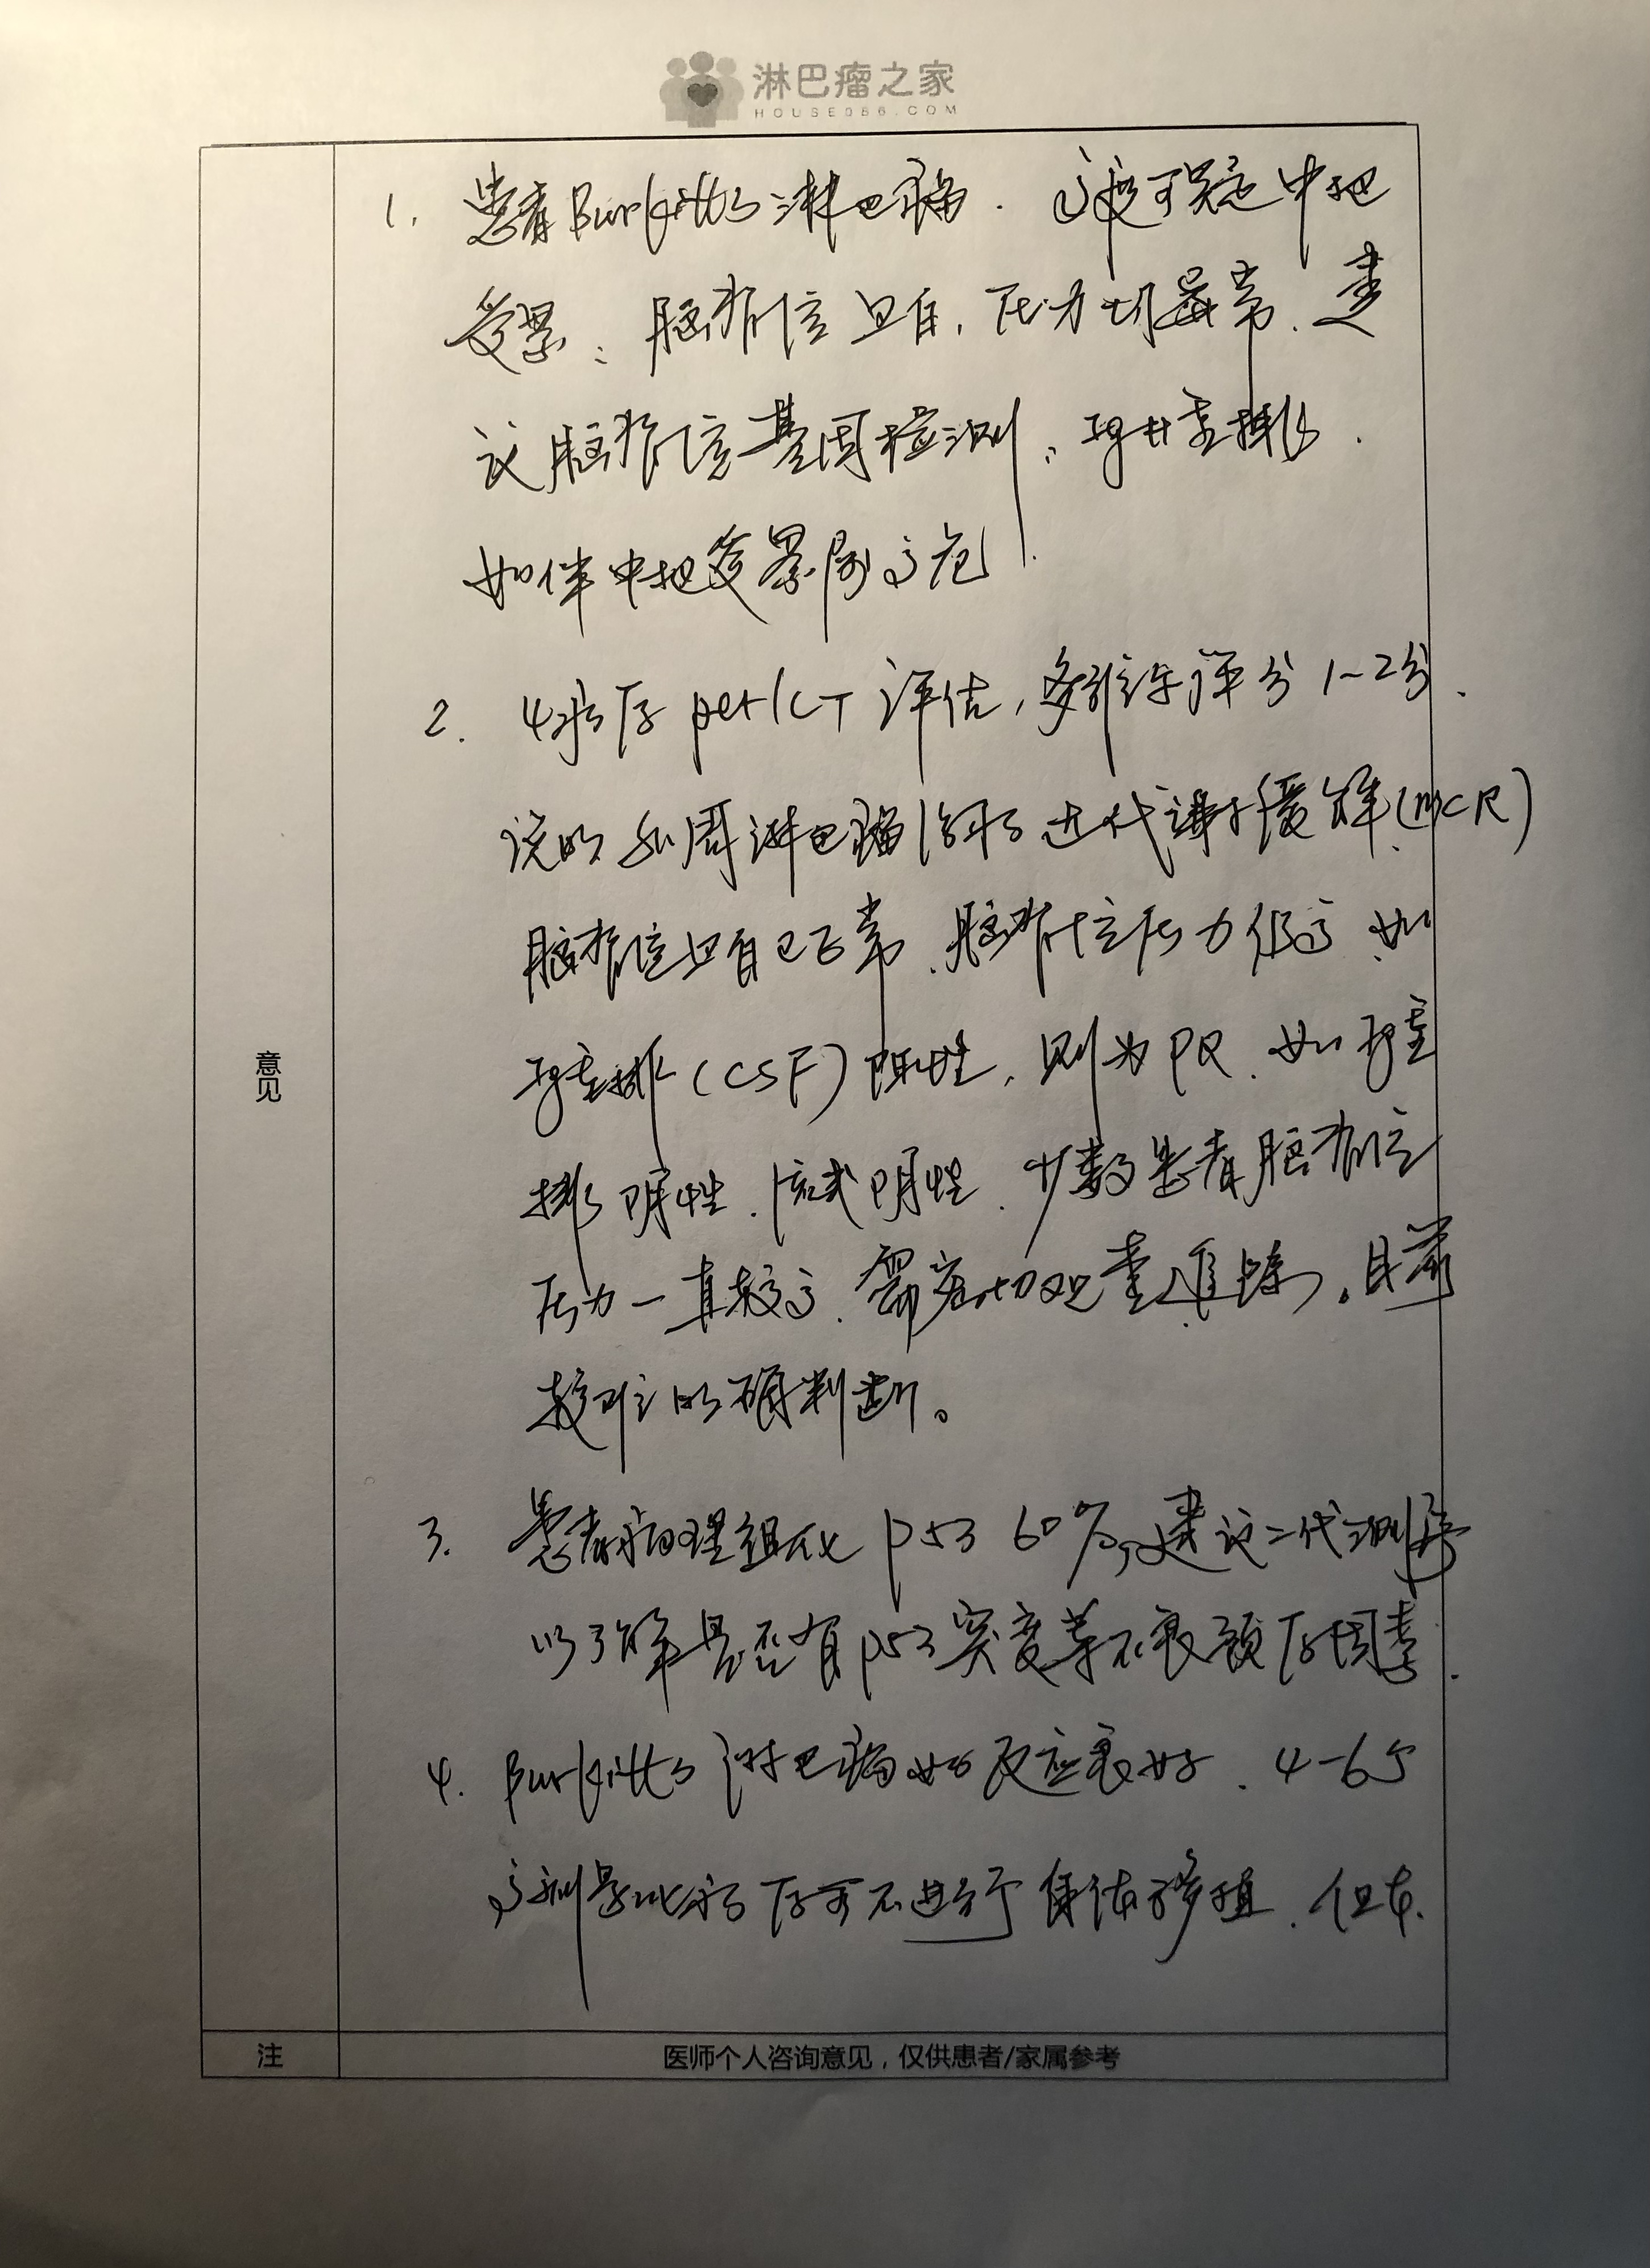 淋巴瘤之家
HOUSE086.COM
1. 患者Burkitt's淋巴瘤. 高度可疑中枢
受累: 脑脊液蛋白, 压力均异常. 建
议脑脊液基因检测, Ig基重排.
如伴中枢受累属高危!
2. 4疗后 pet/CT 评估, 多维尔评分 1~2分.
说明外周淋巴瘤病灶达代谢缓解(mCR)
脑脊液蛋白已正常. 脑脊液压力仍高. 如
Ig重排(CSF)阳性, 则为PR. 如Ig重
排阴性. 流式阴性. 少数患者脑脊液
压力一直较高. 需密切观查追踪。目前
较难明确判断。
3. 患者病理组化 p53 60%, 建议二代测序
以了解是否有p53突变等不良预后因素.
4. Burkitt's 淋巴瘤如反应良好. 4-6疗
高剂量化疗后可不进行自体移植. 但本
意见
注
医师个人咨询意见，仅供患者/家属参考